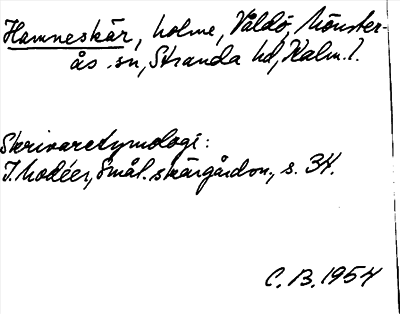 Hamneskär, holme, Valdö, Mönster-
ås sn, Stranda hd, Kalm. l.
Skrivaretymologi:
I. Modéer, Smål. skärgårdsn., s. 34.
C. B. 1954